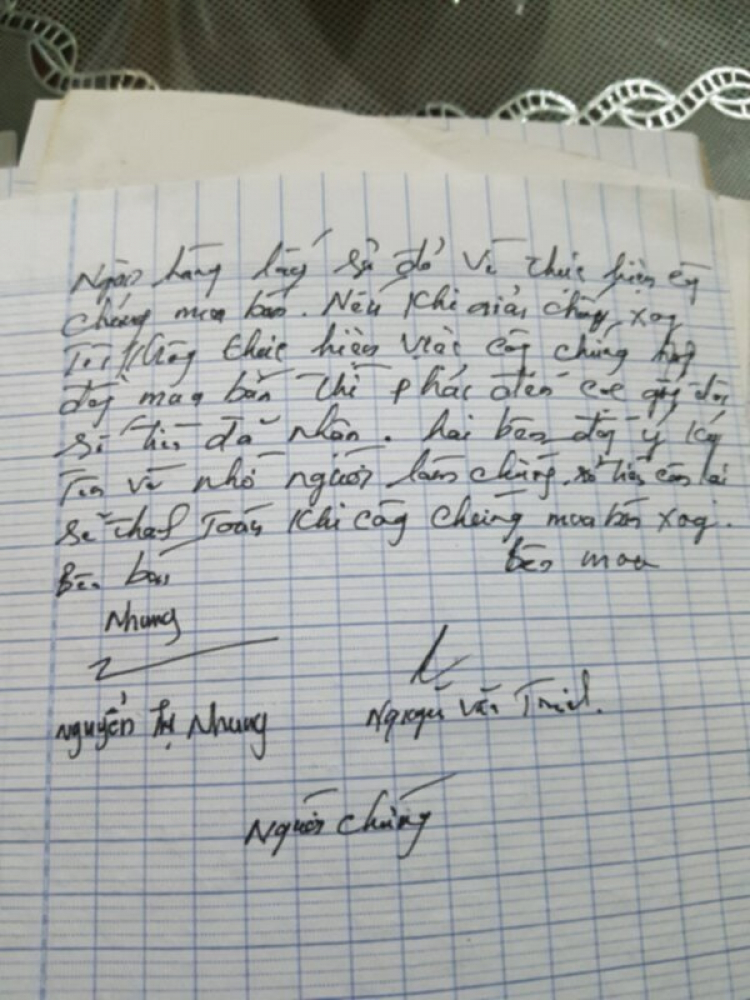 Ngân hàng lấy sổ đỏ về thực hiện công
chứng mua bán. Nếu khi giải chấp xong
Tôi không thực hiện việc công chứng hợp
đồng mua bán thì phải đền cọc gấp đôi
số tiền đã nhận. hai bên đồng ý ký
Tên và nhờ người làm chứng. số tiền còn lại
sẽ thanh Toán khi công chứng mua bán xong.
Bên bán bên mua
Nhung
Nguyễn Thị Nhung Nguyễn Văn
Người chứng